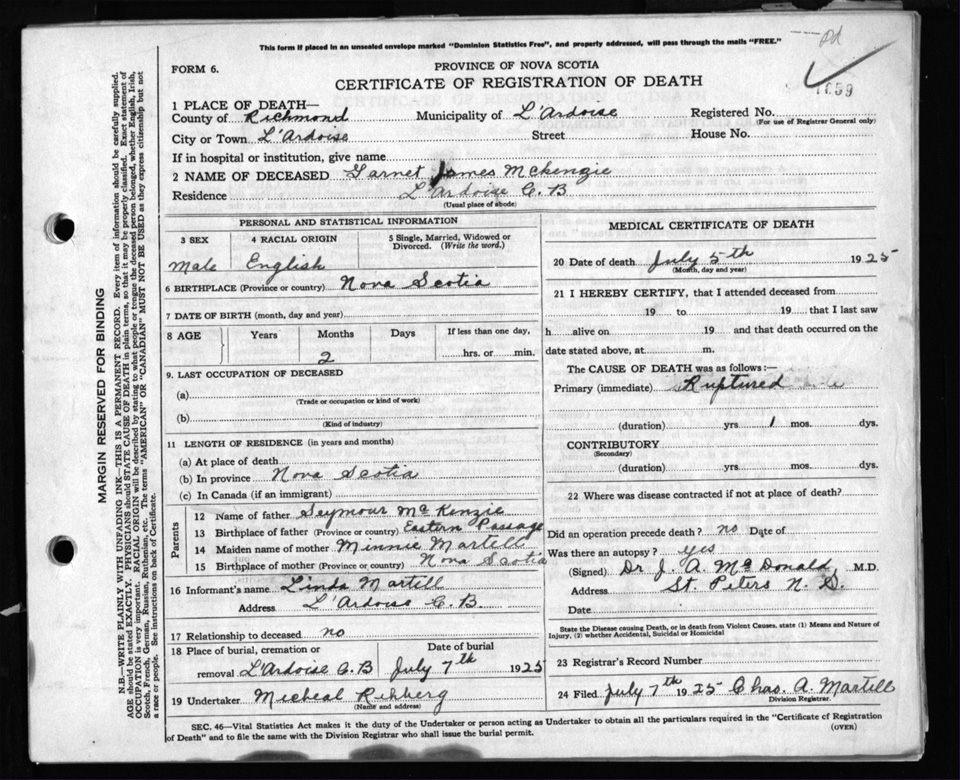 This form if placed in an unsealed envelope marked "Dominion Statistics Free", and properly addressed, will pass through the mails "FREE."
FORM 6.
PROVINCE OF NOVA SCOTIA
CERTIFICATE OF REGISTRATION OF DEATH
1659
1 PLACE OF DEATH—
County of Richmond Municipality of L'Ardoise Registered No.
(For use of Registrar General only)
City or Town L'Ardoise Street House No.
If in hospital or institution, give name
2 NAME OF DECEASED Garnet James Mckenzie
Residence L'Ardoise C.B
(Usual place of abode)
PERSONAL AND STATISTICAL INFORMATION
3 SEX 4 RACIAL ORIGIN 5 Single, Married, Widowed or Divorced. (Write the word.)
Male English
6 BIRTHPLACE (Province or country) Nova Scotia
7 DATE OF BIRTH (month, day and year)
8 AGE Years Months Days If less than one day,
2 hrs. or min.
9. LAST OCCUPATION OF DECEASED
(a)
(Trade or occupation or kind of work)
(b)
(Kind of industry)
11 LENGTH OF RESIDENCE (in years and months)
(a) At place of death
(b) In province Nova Scotia
(c) In Canada (if an immigrant)
Parents
12 Name of father Seymour McKenzie
13 Birthplace of father (Province or country) Eastern Passage
14 Maiden name of mother Minnie Martell
15 Birthplace of mother (Province or country) Nova Scotia
16 Informant's name Linda Martell
Address L'Ardoise C.B.
17 Relationship to deceased no
18 Place of burial, cremation or Date of burial
removal L'Ardoise C.B July 7th 1925
19 Undertaker Micheal Rehberg
(Name and address)
MEDICAL CERTIFICATE OF DEATH
20 Date of death July 5th 1925
(Month, day and year)
21 I HEREBY CERTIFY, that I attended deceased from
19 to 19 that I last saw
h alive on 19 and that death occurred on
date stated above, at m.
The CAUSE OF DEATH was as follows:—
Primary (immediate) Ruptured
(duration) yrs. 1 mos. dys.
CONTRIBUTORY
(Secondary)
(duration) yrs. mos. dys.
22 Where was disease contracted if not at place of death?
Did an operation precede death? no Date of
Was there an autopsy? yes
(Signed) Dr J. A. McDonald M.D.
Address St. Peters N. S.
Date
State the Disease causing Death, or in death from Violent Causes, state (1) Means and Nature of
Injury, (2) whether Accidental, Suicidal or Homicidal
23 Registrar's Record Number
24 Filed July 7th 1925 Chas. A. Martell
Division Registrar.
SEC. 46—Vital Statistics Act makes it the duty of the Undertaker or person acting as Undertaker to obtain all the particulars required in the "Certificate of Registration
of Death" and to file the same with the Division Registrar who shall issue the burial permit.
(OVER)
MARGIN RESERVED FOR BINDING
N.B.—WRITE PLAINLY WITH UNFADING INK—THIS IS A PERMANENT RECORD. Every item of information should be carefully supplied.
AGE should be stated EXACTLY. PHYSICIANS should STATE CAUSE OF DEATH in plain terms, so that it may be properly classified. Exact statement of
OCCUPATION is very important. RACIAL ORIGIN will be described by stating to what people or tongue the deceased person belonged, whether English, Irish,
Scotch, French, German, Russian, Ruthenian, etc. The terms "AMERICAN" OR "CANADIAN" MUST NOT BE USED as they express citizenship but not
a race or people. See instructions on back of Certificate.